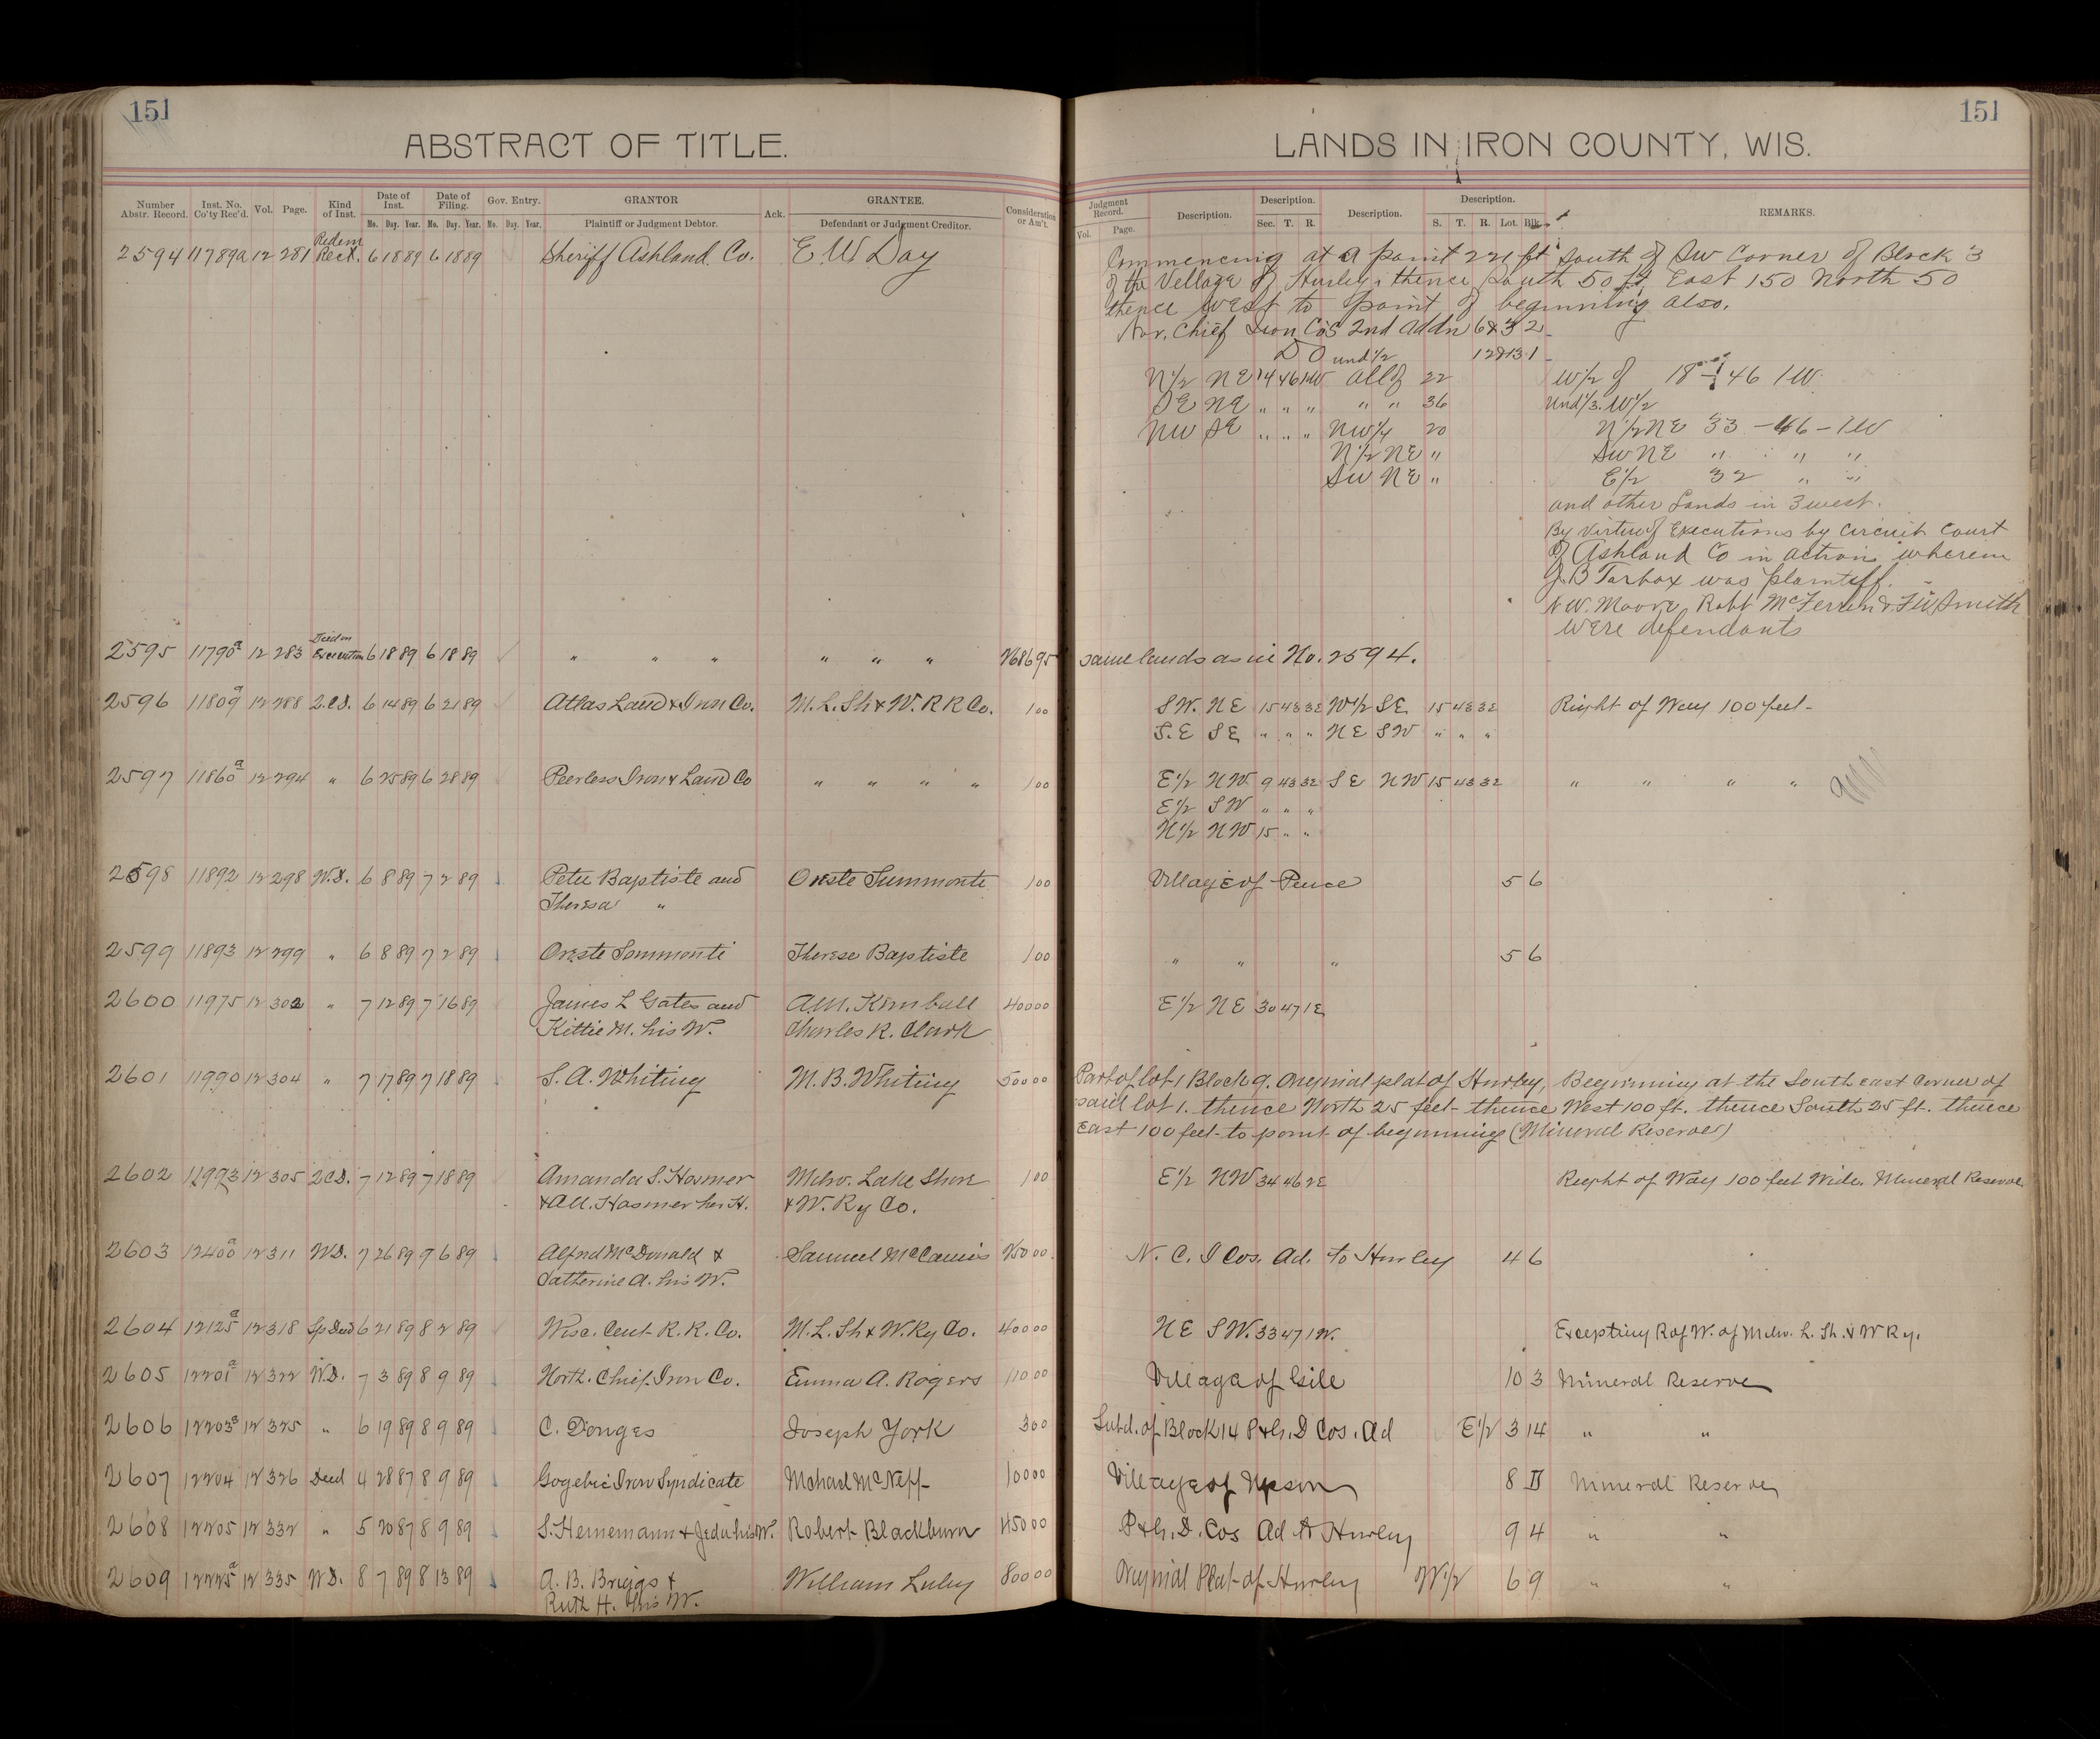 151
ABSTRACT OF TITLE.
LANDS IN IRON COUNTY, WIS.
151
Number Abstr. Record. Inst. No. Co'ty Rec'd. Vol. Page. Kind of Inst. Date of Inst. Mo. Day. Year. Date of Filing. Mo. Day. Year. Gov. Entry. Mo. Day. Year. GRANTOR Plaintiff or Judgment Debtor. Ack. GRANTEE. Defendant or Judgment Creditor. Consideration or Am't.
Judgment Record. Vol. Page. Description. Description. Sec. T. R. Description. Description. S. T. R. Lot. Blk. REMARKS.
2594 11789a 12 281 Redem Rect. 6 18 89 6 18 89 Sheriff Ashland Co. E W Day
Commencing at a point 221 ft South of SW Corner of Block 3
of the Village of Hurley; thence South 50 ft East 150 North 50
thence West to point of beginning also.
Nor. Chief Iron Co's 2nd Addn 6 & 3 2
DO und 1/2 12 & 13 1
N 1/2 NE 14 46 1W All of 22 W 1/2 of 18 - 46 1W
SE NE " " " " " 36 Und 1/3. W 1/2
NW SE " " " NW 1/4 20 N 1/2 NE 33 - 46 - 1W
N 1/2 NE " SW NE " " "
SW NE " E 1/2 32 " "
and other Lands in 3 west.
By Virtue of Executions by Circuit Court
of Ashland Co in action wherein
J. B Tarbox was plaintiff.
N W. Moore, Robt McFerrin & F W Smith
were defendants
2595 11790a 12 283 Deed on Execution 6 18 89 6 18 89 " " " " " " 768695 same lands as in No. 2594.
2596 11809a 12 288 2.C.D. 6 14 89 6 21 89 Atlas Land & Iron Co. M. L. Sh & W. R R Co. 1 00 SW. NE 15 43 3E W 1/2 SE 15 43 3E Right of Way 100 feet
S.E SE " " " NE SW " " "
2597 11860a 12 294 " 6 25 89 6 28 89 Peerless Iron & Land Co " " " " 1 00 E 1/2 NW. 9 43 3E SE NW 15 43 3E " " " "
E 1/2 SW " " "
N 1/2 NW 15 " "
2598 11892 12 298 W.D. 6 8 89 7 2 89 Peter Baptiste and Oreste Summonte 1 00 Village of Pence 5 6
Theresa "
2599 11893 12 299 " 6 8 89 7 2 89 Oreste Sommonti Therese Baptiste 1 00 " " " 5 6
2600 11975 12 302 " 7 12 89 7 16 89 James L Gates and A.M. Kimball 400 00 E 1/2 NE 30 47 1E
Kittie M. his W. Charles R. Clark
2601 11990 12 304 " 7 17 89 7 18 89 S. A. Whiting M. B. Whiting 500 00 Part of lot 1 Block 9. Original plat of Hurley, Beginning at the South east Corner of
said lot 1. thence North 25 feet thence West 100 ft. thence South 25 ft. thence
East 100 feet to point of beginning (Mineral Reserve)
2602 11993 12 305 2CD. 7 12 89 7 18 89 Amanda S. Hosmer Milw. Lake Shore 1 00 E 1/2 NW 34 46 2E Right of Way 100 feet Wide. Mineral Reserve
& A.M. Hosmer her H. & W. Ry Co.
2603 12400a 12 311 W.D. 7 26 89 9 6 89 Alfred McDonald & Samuel McCamis 750 00 N. C. I Cos. Ad. to Hurley 4 6
Catherine A. his W.
2604 12125a 12 318 Sp Deed 6 21 89 8 2 89 Wisc. Cent R. R. Co. M. L. Sh & W. Ry Co. 400 00 NE SW. 33 47 1W. Excepting R of W. of Milw. L. Sh. & W Ry.
2605 12201a 12 322 W.D. 7 3 89 8 9 89 North. Chief Iron Co. Emma A. Rogers 110 00 Village of Gile 10 3 Mineral Reserve
2606 12203a 12 325 " 6 19 89 8 9 89 C. Donges Joseph York 3 00 Subd. of Block 14 P & G. D Cos. Ad E 1/2 3 14 " "
2607 12204 12 326 Deed 4 28 87 8 9 89 Gogebic Iron Syndicate Michael McNeff 100 00 Village of Upson 8 D Mineral Reserve
2608 12205 12 332 " 5 20 87 8 9 89 S. Heinemann & Jeda his W. Robert Blackburn 450 00 P & G. D. Cos Ad to Hurley 9 4 " "
2609 12225a 12 335 W.D. 8 7 89 8 13 89 A. B. Briggs & William Luley 800 00 Original Plat of Hurley W 1/2 6 9 " "
Ruth H. his W.